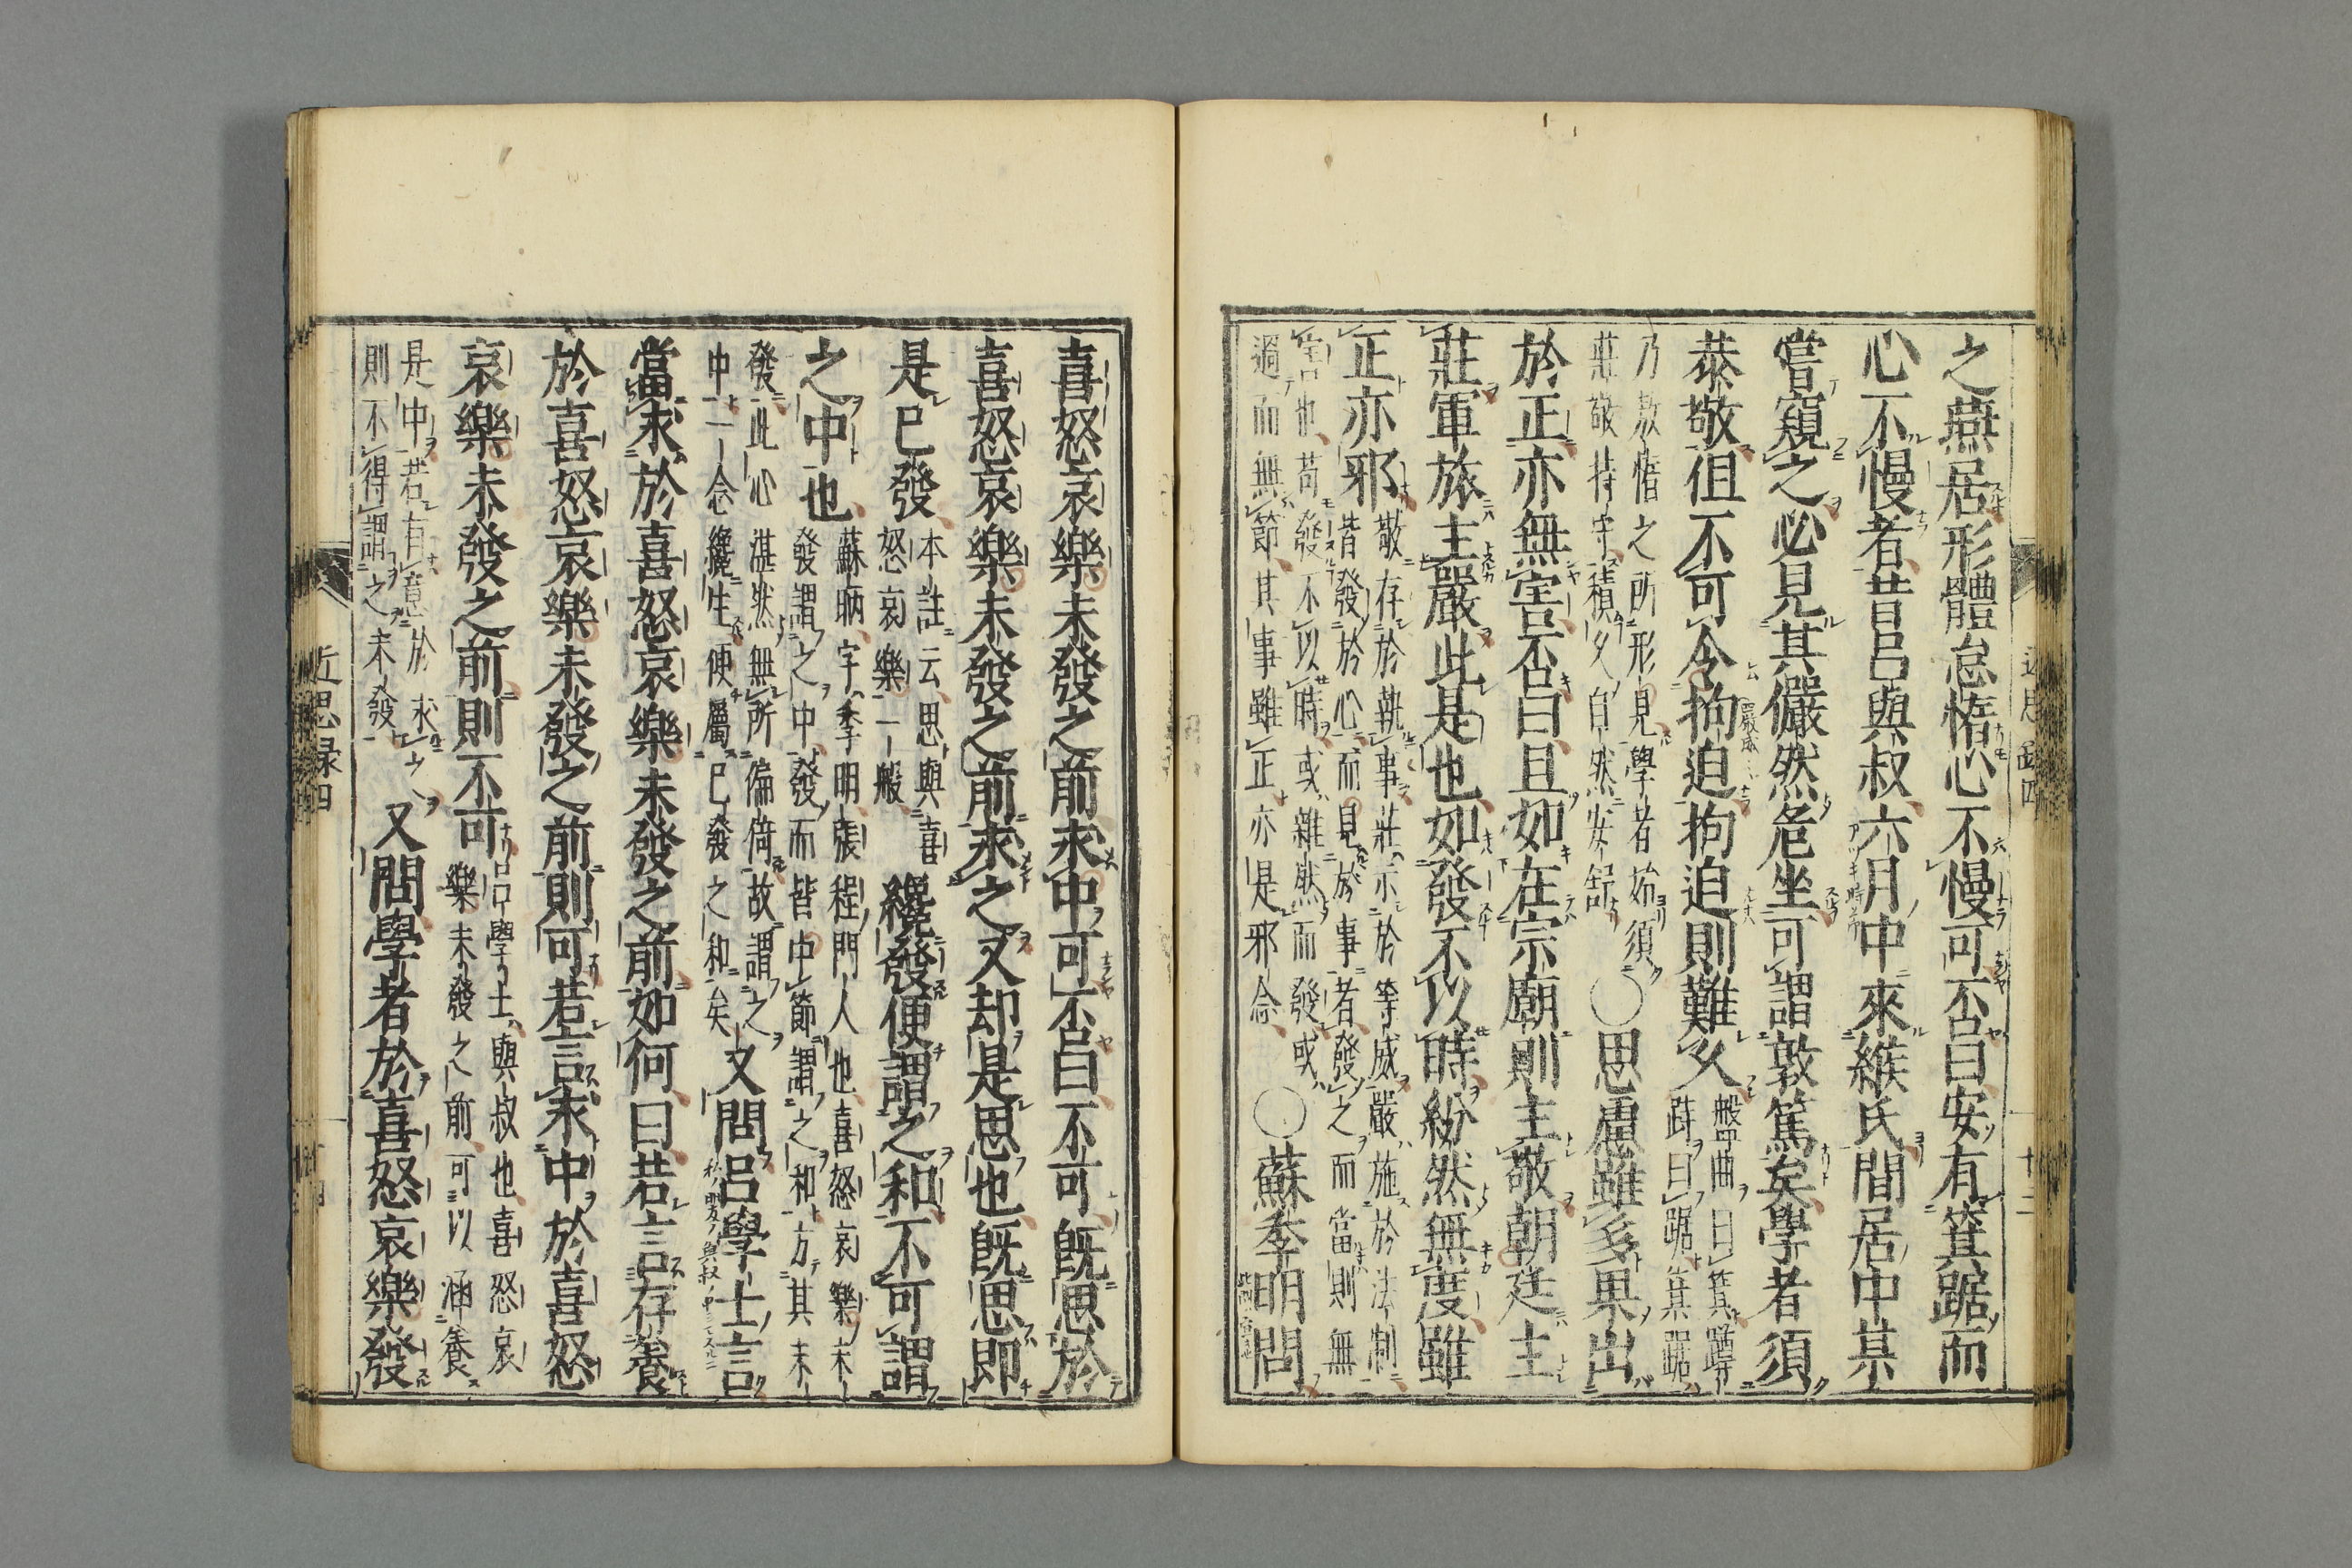 之燕居形體怠惰心不慢可否曰安有箕踞而
心不慢者昔呂與叔六月中來緱氏間居中某
嘗窺之必見其儼然危坐可謂敦篤矣學者須
恭敬但不可令拘迫拘迫則難久
盤曲曰箕蹲
跱曰踞箕踞
乃敖惰之所形見學者始須
莊敬持守積久自然安舒
○思慮雖多果出
於正亦無害否曰且如在宗廟則主敬朝廷主
莊軍旅主嚴此是也如發不以時紛然無度雖
正亦邪
敬存於執事莊示於等威嚴施於法制
皆發於心而見於事者發之而當則無
害也苟發不以時或雜然而發或
過而無節其事雖正亦是邪念
○蘇季明問
喜怒哀樂未發之前求中可否曰不可既思於
喜怒哀樂未發之前求之又却是思也既思即
是已發
本註云思與喜
怒哀樂一般
纔發便謂之和不可謂
之中也
蘇昞字季明張程門人也喜怒哀樂未
發謂之中發而皆中節謂之和方其未
發此心湛然無所偏倚故謂之
中一念纔生便屬已發之和矣
又問呂學士言
當求於喜怒哀樂未發之前如何曰若言存養
於喜怒哀樂未發之前則可若言求中於喜怒
哀樂未發之前則不可
呂學士與叔也喜怒哀
樂未發之前可以涵養
是中若有意於求之
則不得謂之未發
又問學者於喜怒哀樂發
近思録四